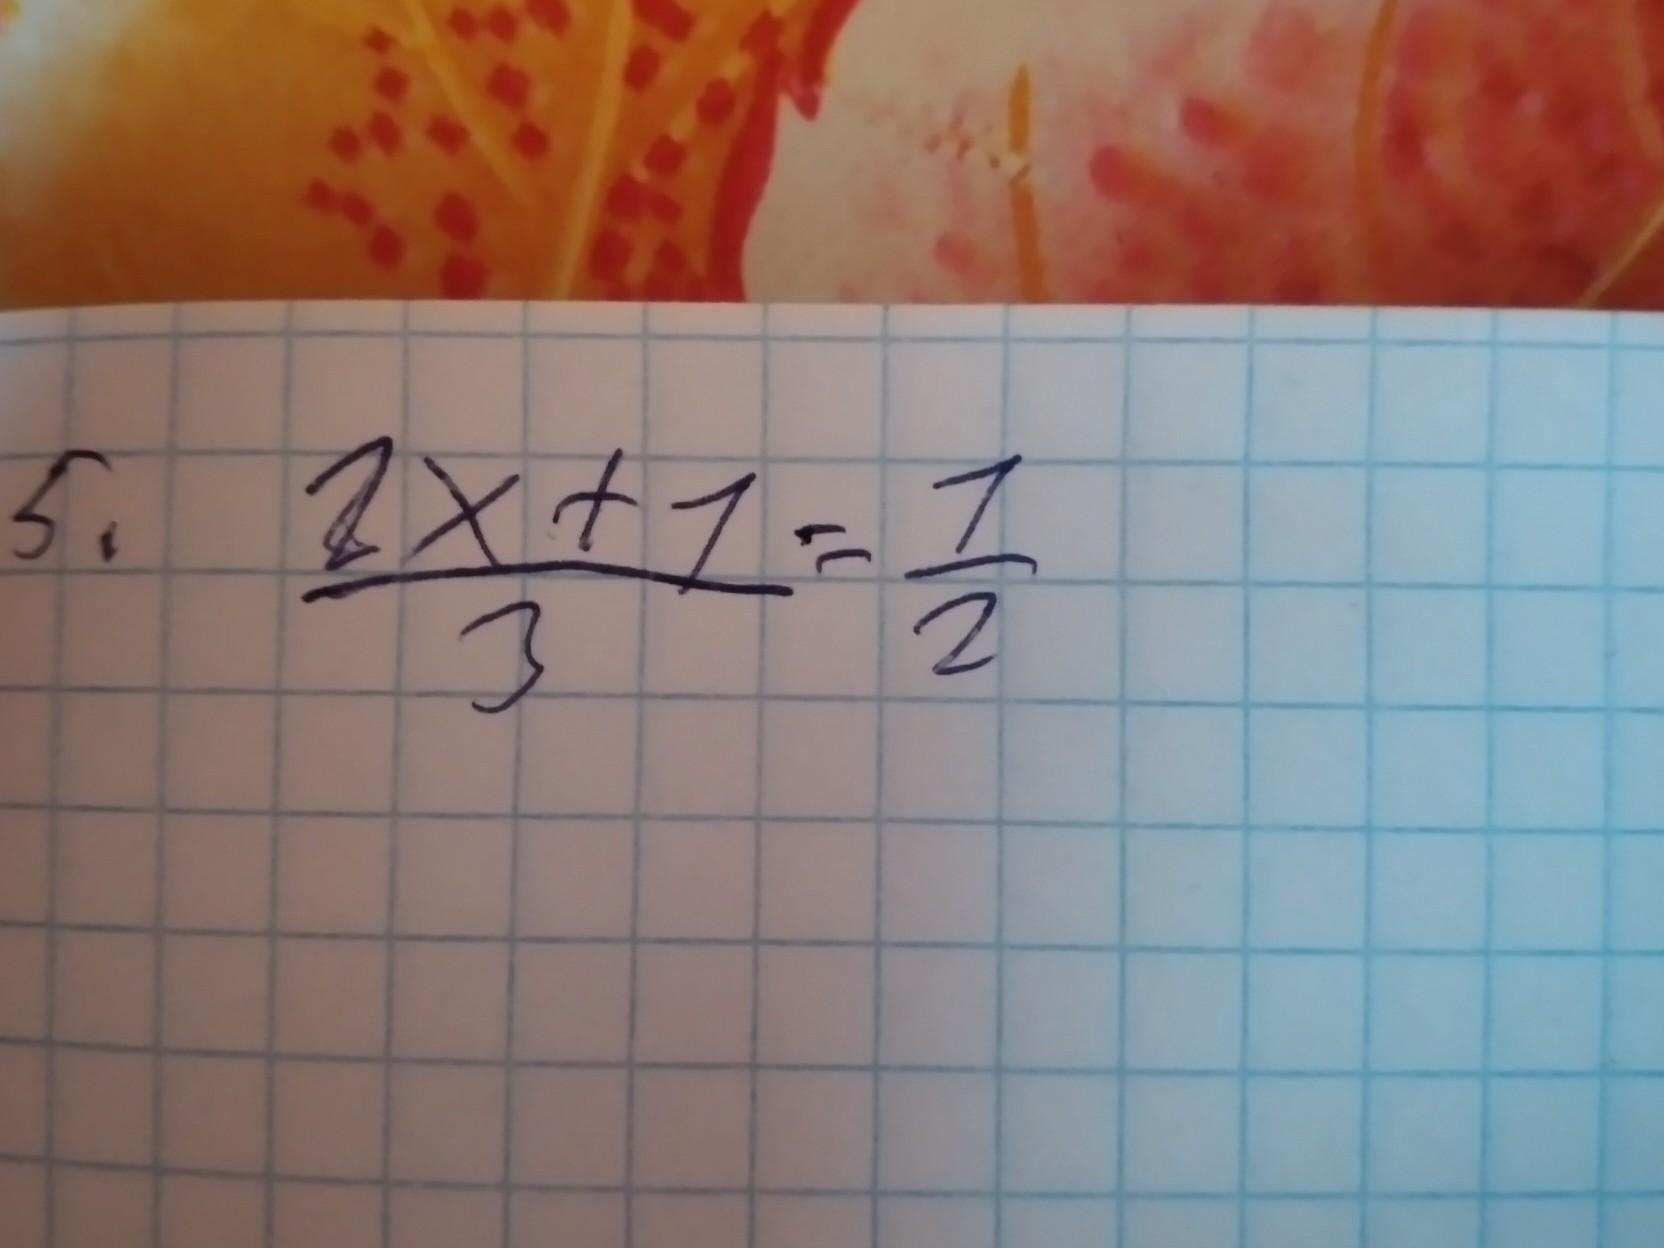 5. (2x+1)/3 = 1/2